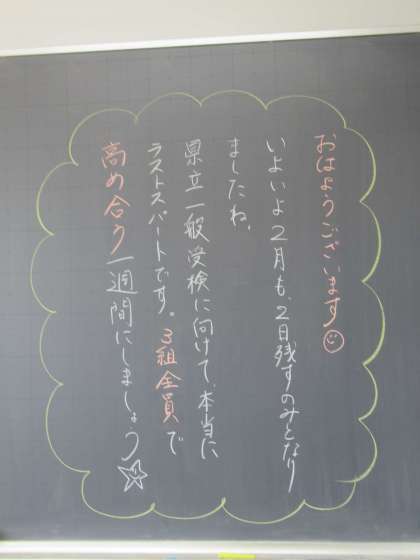 おはようございます
いよいよ2月も、2日残すのみとなり
ましたね。
県立一般受検に向けて、本当に
ラストスパートです。3組全員で
高め合う一週間にしましょう